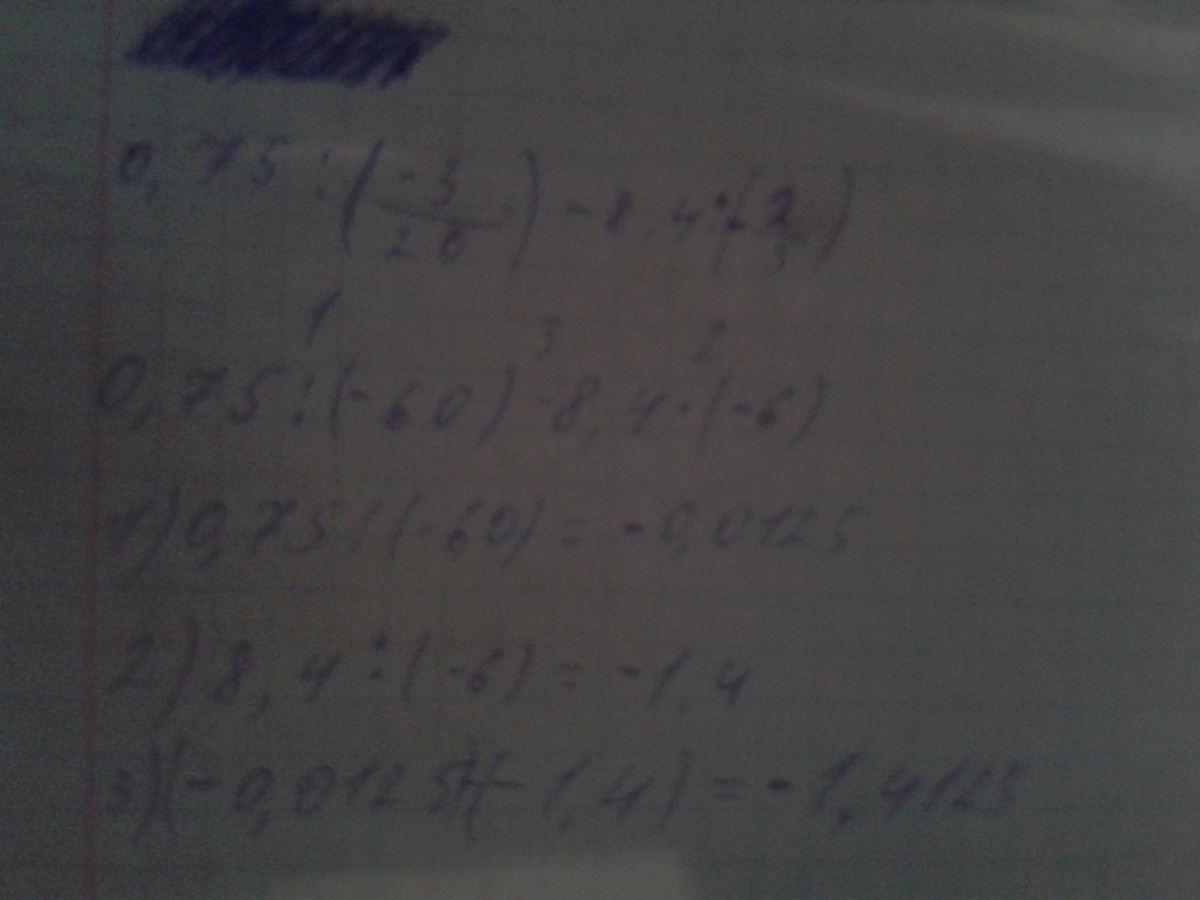 0,75 : (-3/20) - 8,4 : (-2/3)
1 3 2
0,75 : (-60) - 8,4 · (-6)
1) 0,75 : (-60) = -0,0125
2) 8,4 : (-6) = -1,4
3) (-0,0125)+(-1,4) = -1,4125